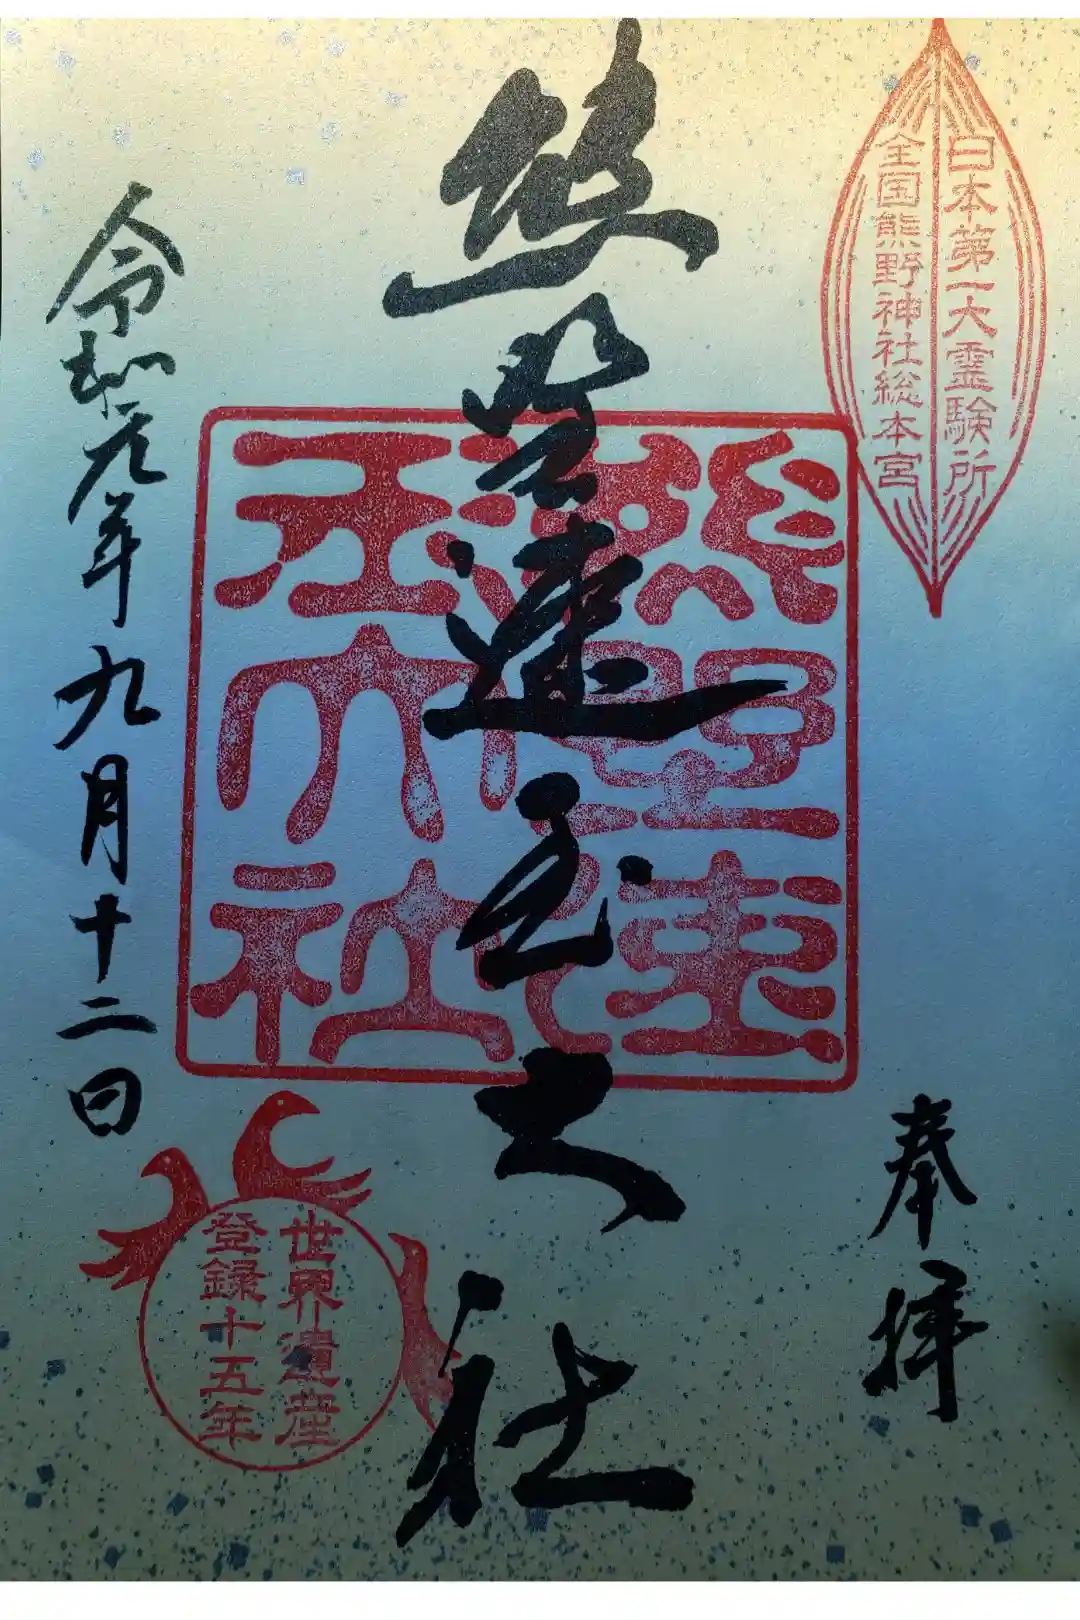 日本第一大霊験所
全国熊野神社総本宮
奉拝
熊野速玉大社
熊野速玉大社
令和元年九月十二日
世界遺産
登録十五年